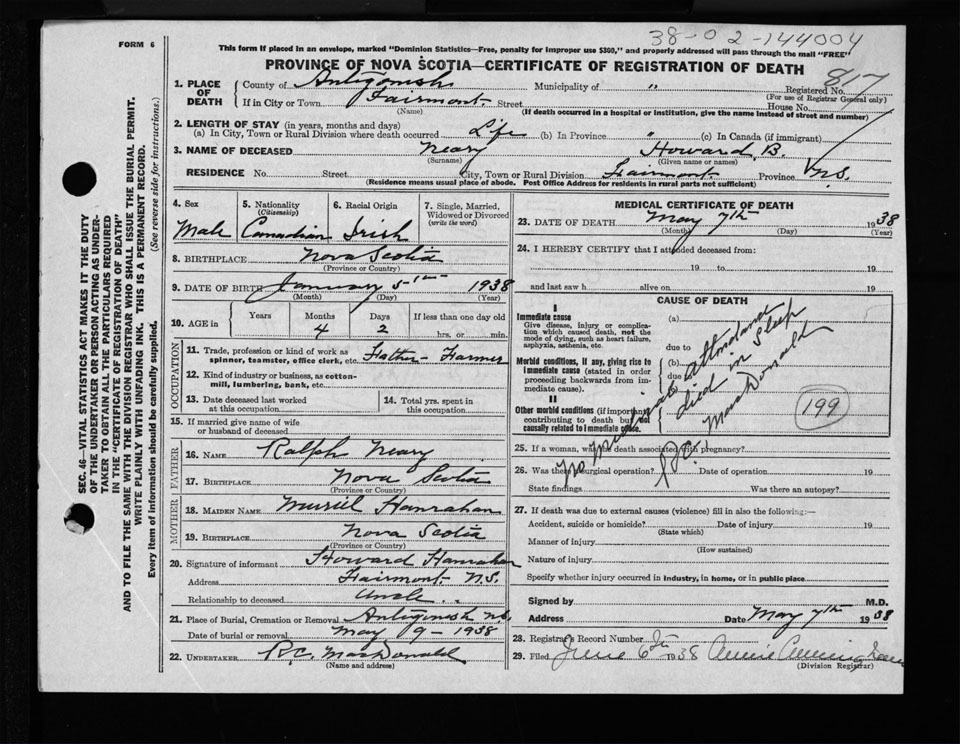 38-02-144004
FORM 6
This form if placed in an envelope, marked "Dominion Statistics—Free, penalty for improper use $300," and properly addressed will pass through the mail "FREE"
PROVINCE OF NOVA SCOTIA—CERTIFICATE OF REGISTRATION OF DEATH
817
1. PLACE OF DEATH
County of Antigonish Municipality of " Registered No.
(For use of Registrar General only)
If in City or Town Fairmont Street House No.
(Name) (If death occurred in a hospital or institution, give the name instead of street and number)
2. LENGTH OF STAY (in years, months and days)
(a) In City, Town or Rural Division where death occurred Life (b) In Province " (c) In Canada (if immigrant)
3. NAME OF DECEASED Neary Howard B.
(Surname) (Given name or names)
RESIDENCE No. Street City, Town or Rural Division Fairmont Province N.S.
(Residence means usual place of abode. Post Office Address for residents in rural parts not sufficient)
SEC. 46—VITAL STATISTICS ACT MAKES IT THE DUTY
OF THE UNDERTAKER OR PERSON ACTING AS UNDER-
TAKER TO OBTAIN ALL THE PARTICULARS REQUIRED
IN THE "CERTIFICATE OF REGISTRATION OF DEATH"
AND TO FILE THE SAME WITH THE DIVISION REGISTRAR WHO SHALL ISSUE THE BURIAL PERMIT.
WRITE PLAINLY WITH UNFADING INK. THIS IS A PERMANENT RECORD.
Every item of information should be carefully supplied. (See reverse side for instructions.)
4. Sex 5. Nationality (Citizenship) 6. Racial Origin 7. Single, Married, Widowed or Divorced (write the word)
Male Canadian Irish
8. BIRTHPLACE Nova Scotia
(Province or Country)
9. DATE OF BIRTH January 5th 1938
(Month) (Day) (Year)
10. AGE in Years Months Days If less than one day old
4 2 hrs. or min.
OCCUPATION
11. Trade, profession or kind of work as spinner, teamster, office clerk, etc. Father - Farmer
12. Kind of industry or business, as cotton-mill, lumbering, bank, etc.
13. Date deceased last worked at this occupation 14. Total yrs. spent in this occupation
15. If married give name of wife or husband of deceased
FATHER
16. NAME Ralph Neary
17. BIRTHPLACE Nova Scotia
(Province or Country)
MOTHER
18. MAIDEN NAME Murriel Hanrahan
19. BIRTHPLACE Nova Scotia
(Province or Country)
20. Signature of informant Howard Hanrahan
Address Fairmont N.S.
Relationship to deceased Uncle
21. Place of Burial, Cremation or Removal Antigonish N.S.
Date of burial or removal May 9 - 1938
22. UNDERTAKER R.C. MacDonald
(Name and address)
MEDICAL CERTIFICATE OF DEATH
23. DATE OF DEATH May 7th 1938
(Month) (Day) (Year)
24. I HEREBY CERTIFY that I attended deceased from:
19 to 19
and last saw h alive on 19
CAUSE OF DEATH
I
Immediate cause
Give disease, injury or complication which caused death, not the mode of dying, such as heart failure, asphyxia, asthenia, etc.
(a)
due to
Morbid conditions, if any, giving rise to immediate cause (stated in order proceeding backwards from immediate cause).
(b)
due
(c)
II
Other morbid conditions (if important) contributing to death but not causally related to immediate cause.
No Medical attendance
died in sleep
MacDonald
199
25. If a woman, was the death associated with pregnancy?
26. Was there a surgical operation? Date of operation 19
State findings Was there an autopsy?
27. If death was due to external causes (violence) fill in also the following:—
Accident, suicide or homicide? Date of injury 19
(State which)
Manner of injury
(How sustained)
Nature of injury
Specify whether injury occurred in industry, in home, or in public place
Signed by M.D.
Address Date May 7th 1938
28. Registrar's Record Number
29. Filed June 6th 1938 Annie Cunningham
(Division Registrar)